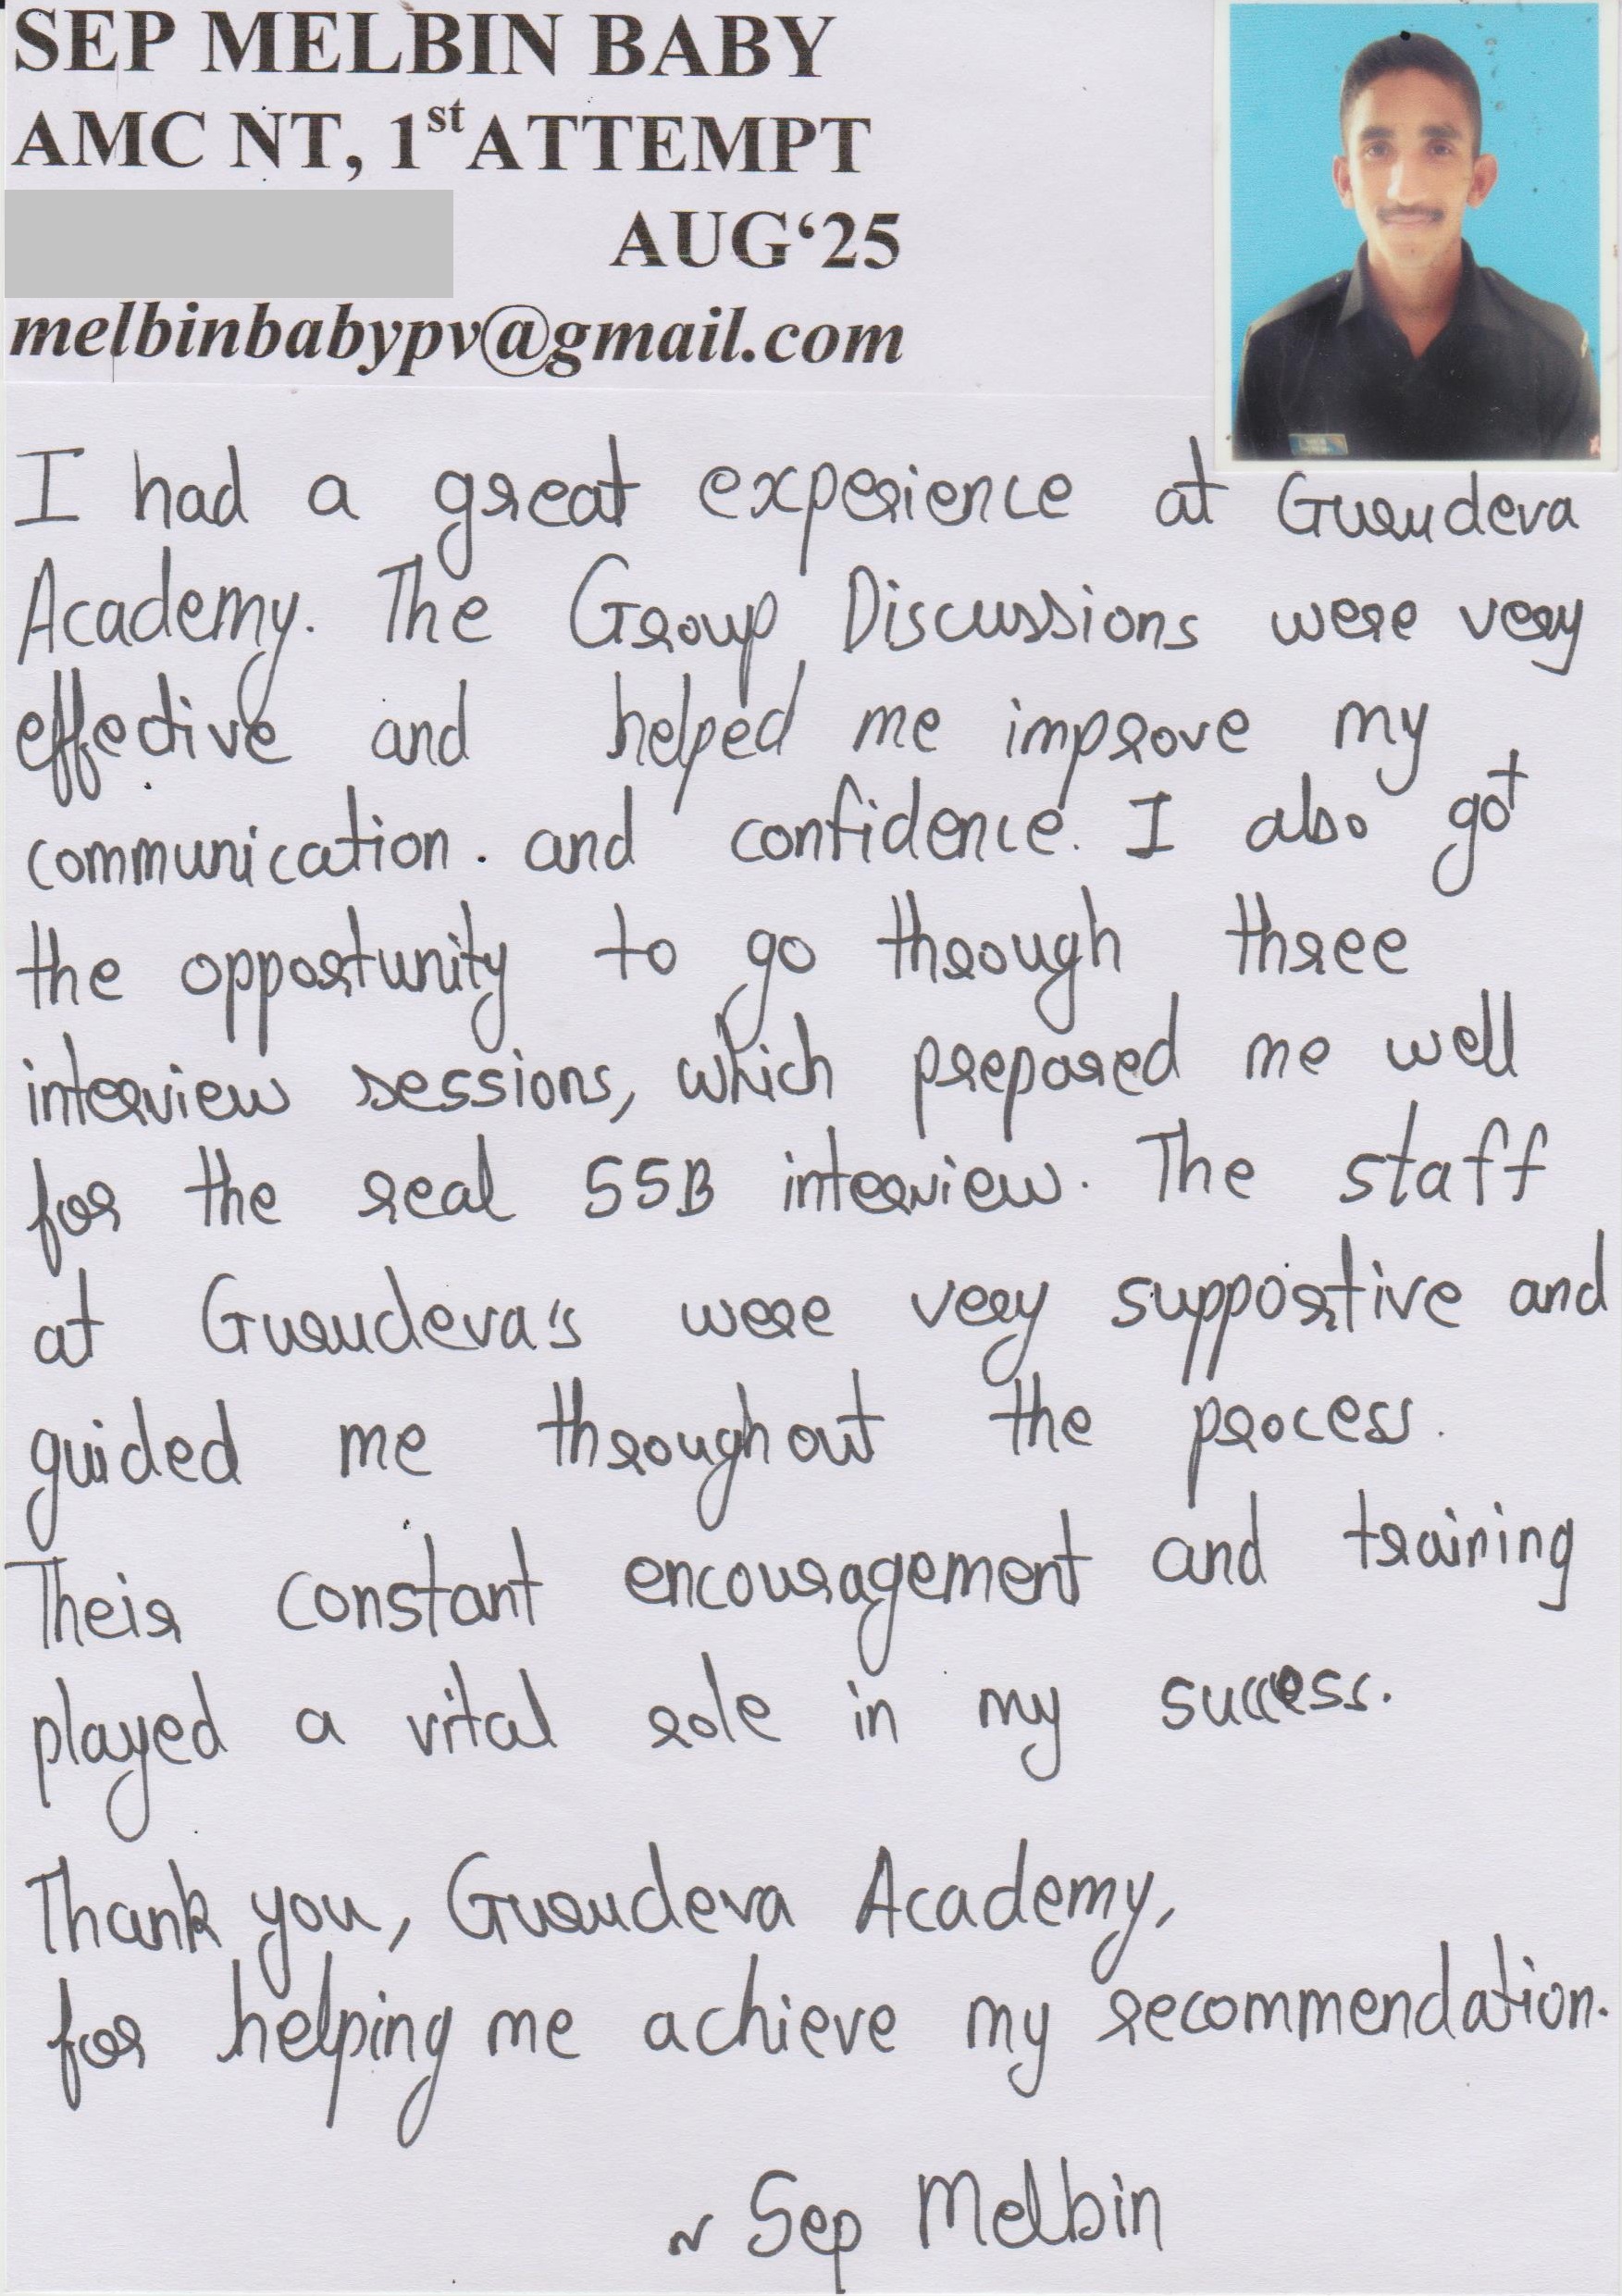 SEP MELBIN BABY
AMC NT, 1st ATTEMPT
AUG‘25
melbinbabypv@gmail.com
I had a great experience at Gurudeva
Academy. The Group Discussions were very
effective and helped me improve my
communication. and confidence. I also got
the opportunity to go through three
interview sessions, which prepared me well
for the real SSB interview. The staff
at Gurudeva's were very supportive and
guided me throughout the process.
Their constant encouragement and training
played a vital role in my success.
Thank you, Gurudeva Academy,
for helping me achieve my recommendation.
~ Sep Melbin